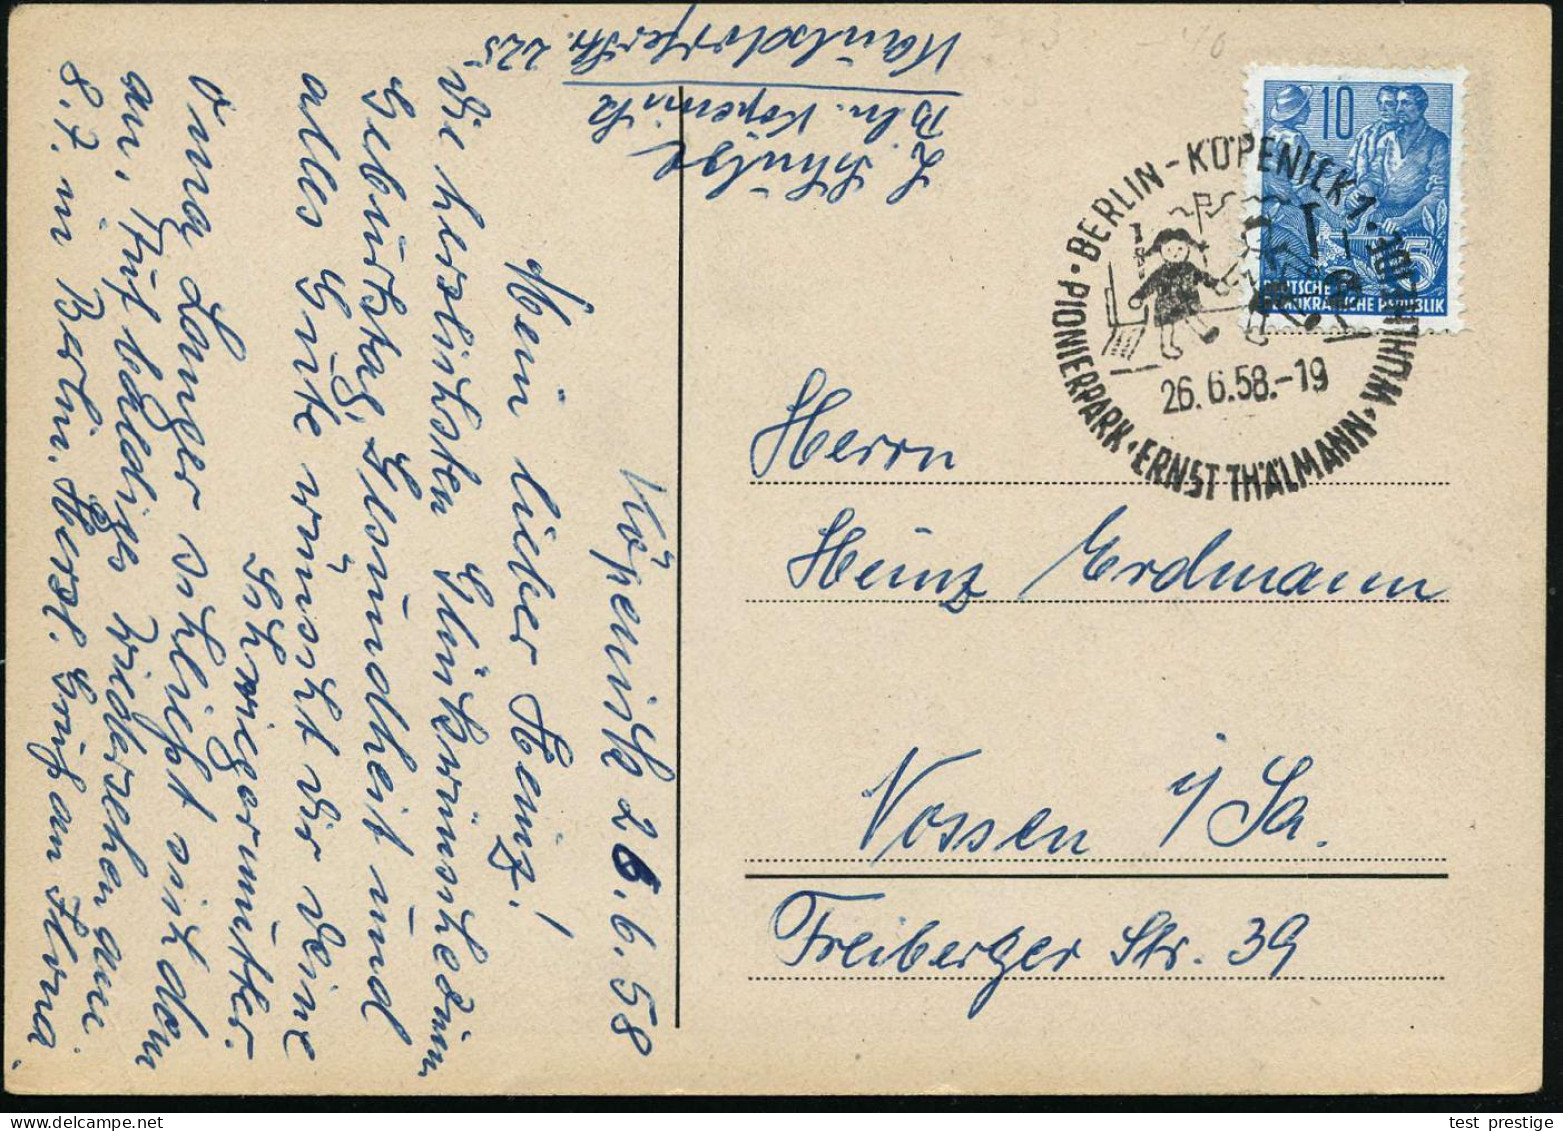 L. Schulze
Bln. Köpenick
Kaulsdorferstr. 225
Köpenick 26.6.58
Mein lieber Heinz!
Die herzlichsten Glückwünsche zum
Geburtstag, Gesundheit und
alles Gute wünscht Dir Deine
Schwiegermutter.
Oma Langer schließt sich dem
an. Auf baldiges Wiedersehen am
8.7. in Berlin. Herzl. Gruß an
10
DEUTSCHE
DEMOKRATISCHE REPUBLIK
BERLIN-KÖPENICK 1 · WUHLHEIDE · PIONIERPARK · ERNST THÄLMANN ·
26.6.58.-19
Herrn
Heinz Erdmann
Nossen i/Sa.
Freiberger Str. 39
test prestige